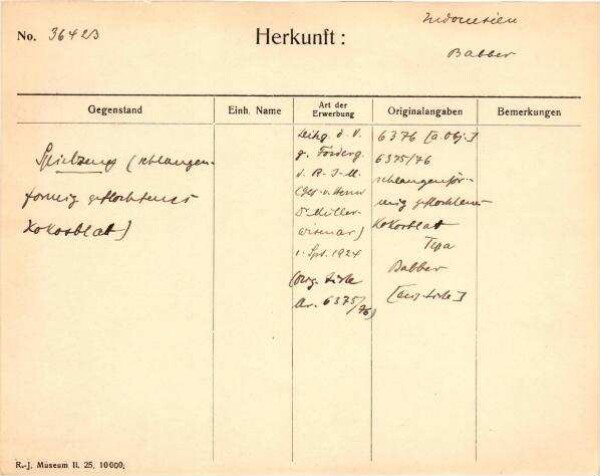 No. 36423
Herkunft:
Indonesien
Babber
Gegenstand
Einh. Name
Art der Erwerbung
Originalangaben
Bemerkungen
Spielzeug (schlangen-
förmig geflochtenes
Kokosblatt)
Leihg. d. V.
z. Förderg.
d. R-J-M.
(Ges. v. Herrn
Dr Müller-
Wismar)
1. Spt. 1924
(Org. Liste
Nr. 6375/76)
6376 [a. Obj.]
6375/76
schlangenför-
mig geflochten
Kokosblat
Tepa
Babber
[Org. Liste]
R.-J. Museum II. 25. 10000.